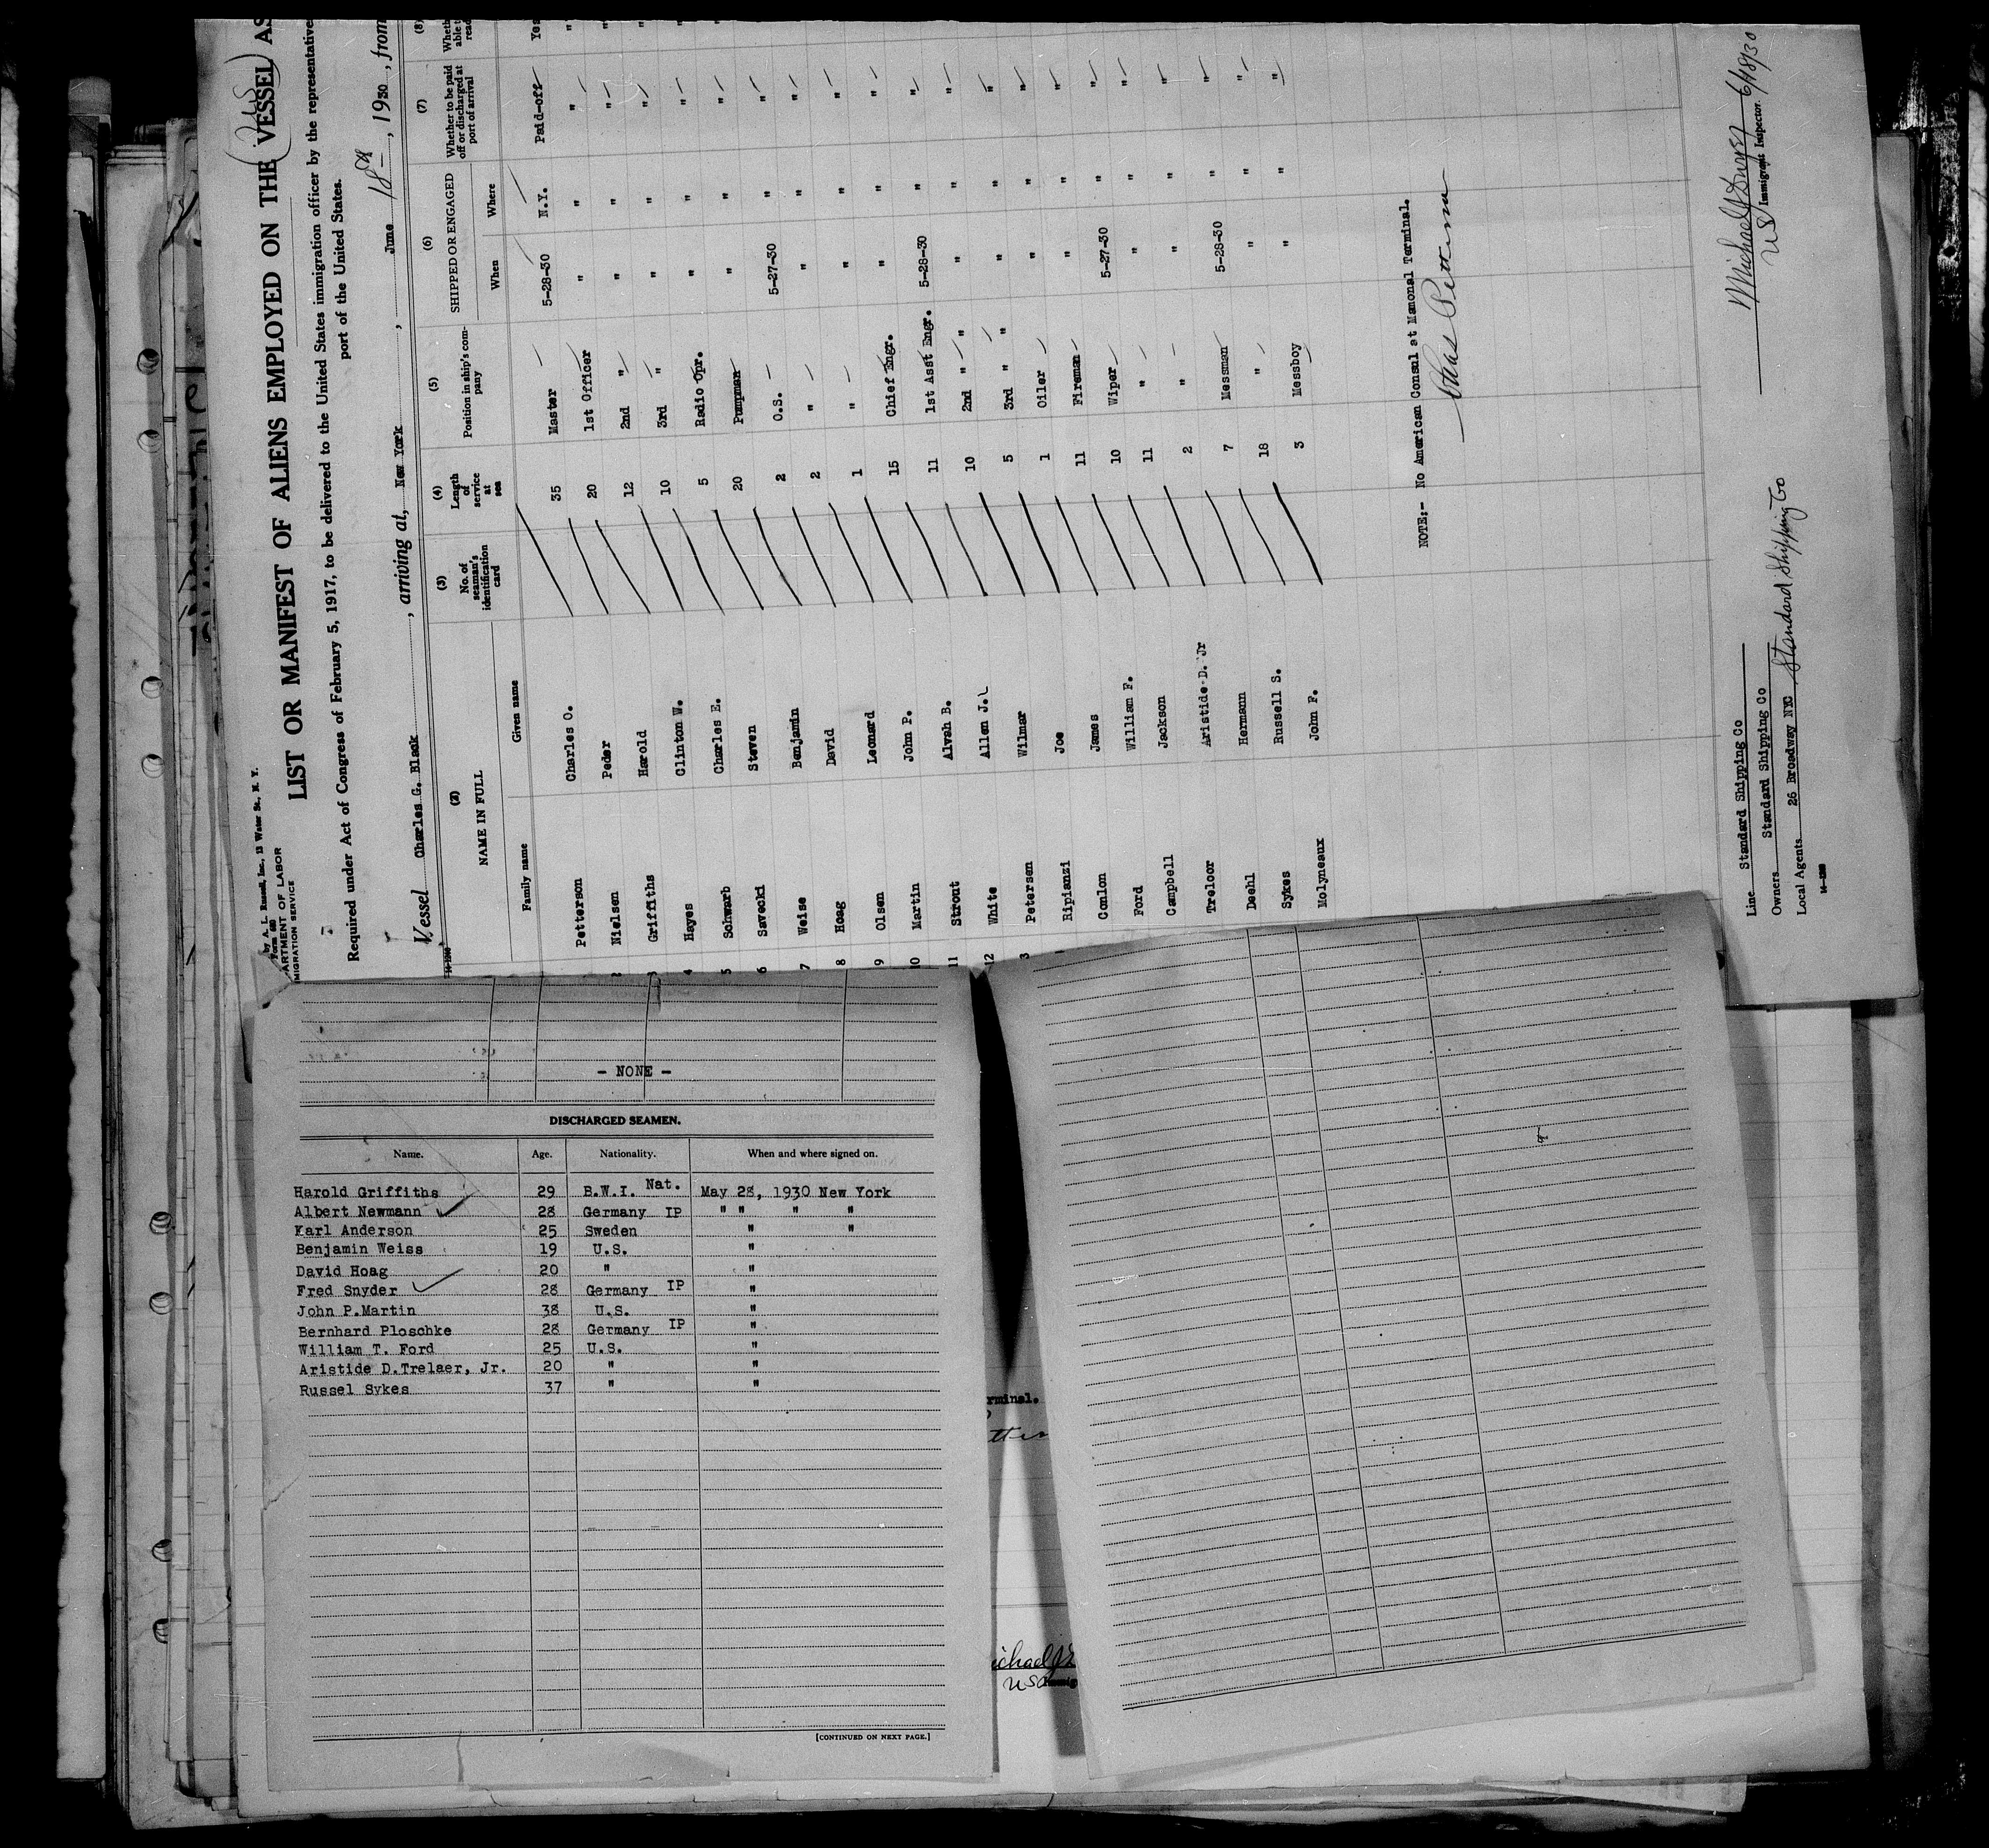 by A. L. Russell, Inc., 13 Water St., N. Y.
Form 680
ARTMENT OF LABOR
MIGRATION SERVICE
LIST OR MANIFEST OF ALIENS EMPLOYED ON THE VESSEL AS
Required under Act of Congress of February 5, 1917, to be delivered to the United States immigration officer by the representative
port of the United States.
Vessel Charles G. Black, arriving at, New York, June 18th, 1930, from
(2) (3) (4) (5) (6) (7) (8)
NAME IN FULL No. of seaman's identification card Length of service at sea Position in ship's company SHIPPED OR ENGAGED Whether to be paid off or discharged at port of arrival Wheth able to read
Family name Given name When Where
Petterson Charles O. 35 Master 5-28-30 N.Y. Paid-off Yes
2 Nielsen Peder 20 1st Officer " " " "
3 Griffiths Harold 12 2nd " " " " "
4 Hayes Clinton W. 10 3rd " " " " "
5 Schwarb Charles E. 5 Radio Opr. " " " "
6 Savecki Steven 20 Pumpman " " "
7 Weise Benjamin 2 O.S. 5-27-30 " "
8 Hoag David 2 " " " "
9 Olsen Leonard 1 " " " "
10 Martin John P. 15 Chief Engr. " " "
11 Strout Alvah B. 11 1st Asst Engr. 5-28-30 " "
12 White Allen J. 10 2nd " " " " "
3 Petersen Wilmar 5 3rd " " " " "
Ripianzi Joe 1 Oiler " " "
Conlon James 11 Fireman " " "
Ford William F. 10 Wiper 5-27-30 " "
Campbell Jackson 11 " " " "
Treloor Aristide D. Jr 2 " " " "
Deehl Hermann 7 Messman 5-28-30 " "
Sykes Russell S. 18 " " " "
Molyneaux John F. 3 Messboy " " "
NOTE:- No American Consul at Mamonal Terminal.
Chas Petterson
Line Standard Shipping Co
Owners Standard Shipping Co
Local Agents 26 Broadway NYC Standard Shipping Co
Michael J Dwyer 6/18/30
US Immigrant Inspector.
- NONE -
DISCHARGED SEAMEN.
Name. Age. Nationality. When and where signed on.
Harold Griffiths 29 B.W.I. Nat. May 28, 1930 New York
Albert Newmann 28 Germany IP " " " "
Karl Anderson 25 Sweden " "
Benjamin Weiss 19 U.S. "
David Hoag 20 " "
Fred Snyder 28 Germany IP "
John P.Martin 38 U.S. "
Bernhard Ploschke 28 Germany IP "
William T. Ford 25 U.S. "
Aristide D.Trelaer, Jr. 20 " "
Russel Sykes 37 " "
[CONTINUED ON NEXT PAGE.]
rminal.
ichael J
US